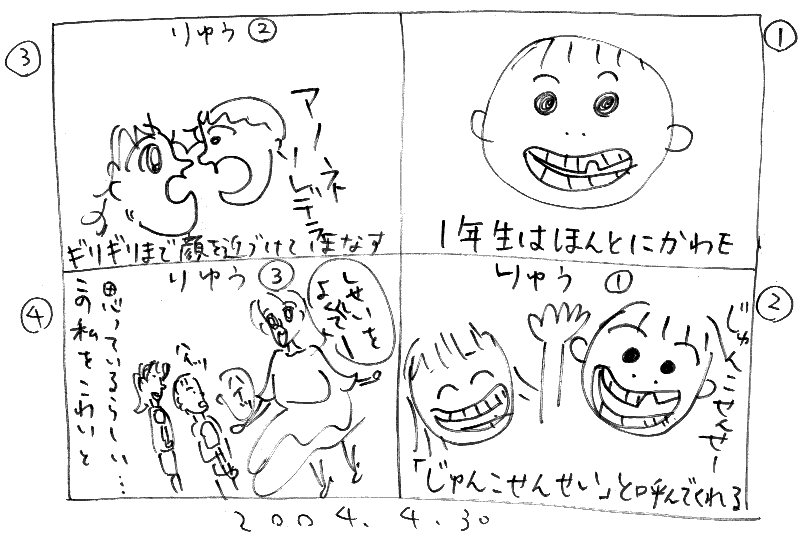 ①
1年生はほんとにかわE
②
りゆう①
じゅんこせんせー
「じゅんこせんせい」と呼んでくれる
③
りゆう②
アノネ
ギリギリまで顔を近づけて
④
りゆう③
しせいを
よくでー
ハイッ
ハイッ
この私をこわいと
思っているらしい…
2004.4.30